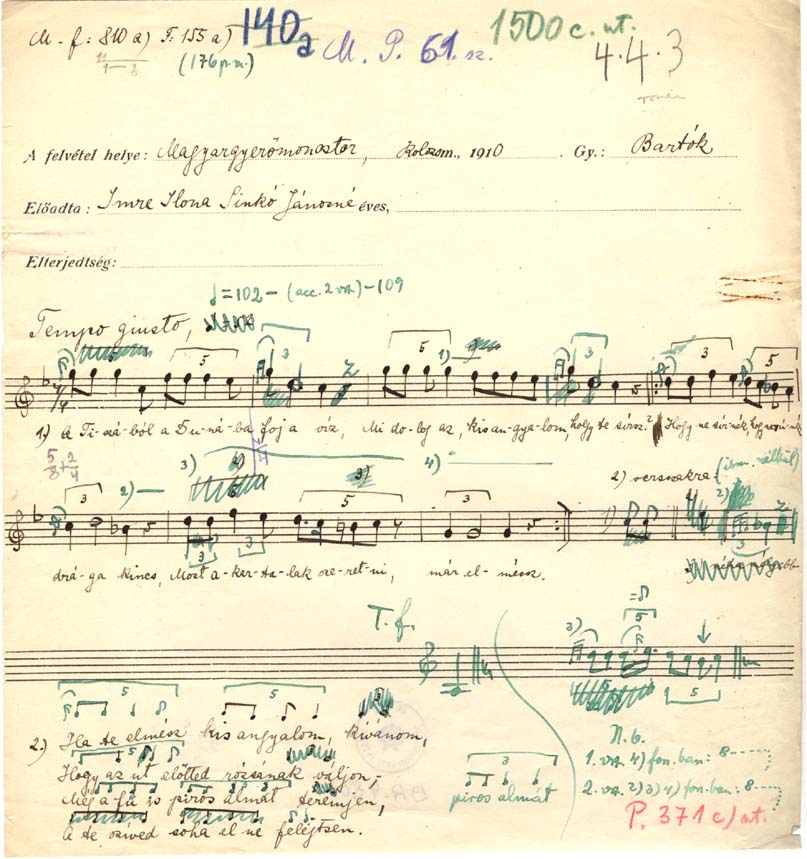 M.-f: 810a) F. 155a) 140a
(176 p.m.)
M. P. 61. sz.
1500 c. ut.
4.4.3
román
A felvétel helye: Magyargyerőmonostor, Kolozsm., 1910. Gy.: Bartók
Előadta: Imre Ilona Sinkó Jánosné éves,
Elterjedtség:
♩=102-(acc. 2 vsz.)-109
Tempo giusto,
5 5 3 5 1) 3 3 5
1.) A Ti-szá-ból a Du-ná-ba foj a víz, Mi do-log az, kis an-gya-lom, hogy te sírsz? Hogy ne sír-nék,
3 2) 3) 4) 2) versszakra:
3 3 5 3 1) 2)
drá-ga kincs, Most a-kar-ta-lak sze-ret-ni, már el-mész.
T. f.
3) 5
5 5
2.) Ha te elmész kis angyalom, kívánom,
Hogy az út előtted rózsának váljon,
Még a fű is piros almát teremjen,
A te szíved soha el ne felejtsen.
3
piros almát
N.b.
1. vsz. 4) fon.ban: 8
2. vsz. 2) 3) 4) fon.ban: 8
P. 371 c) at.